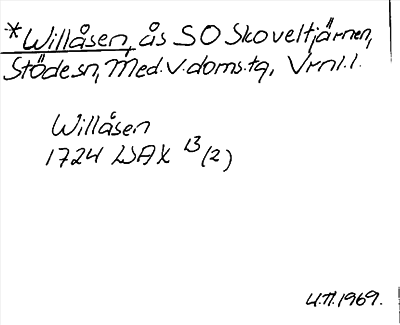 *Willåsen, ås SO Skoveltjärnen,
Stöde sn, Med.V.doms.tg, Vrnl.l.
Willåsen
1724 LSAX 13/(2)
U.H.1969.